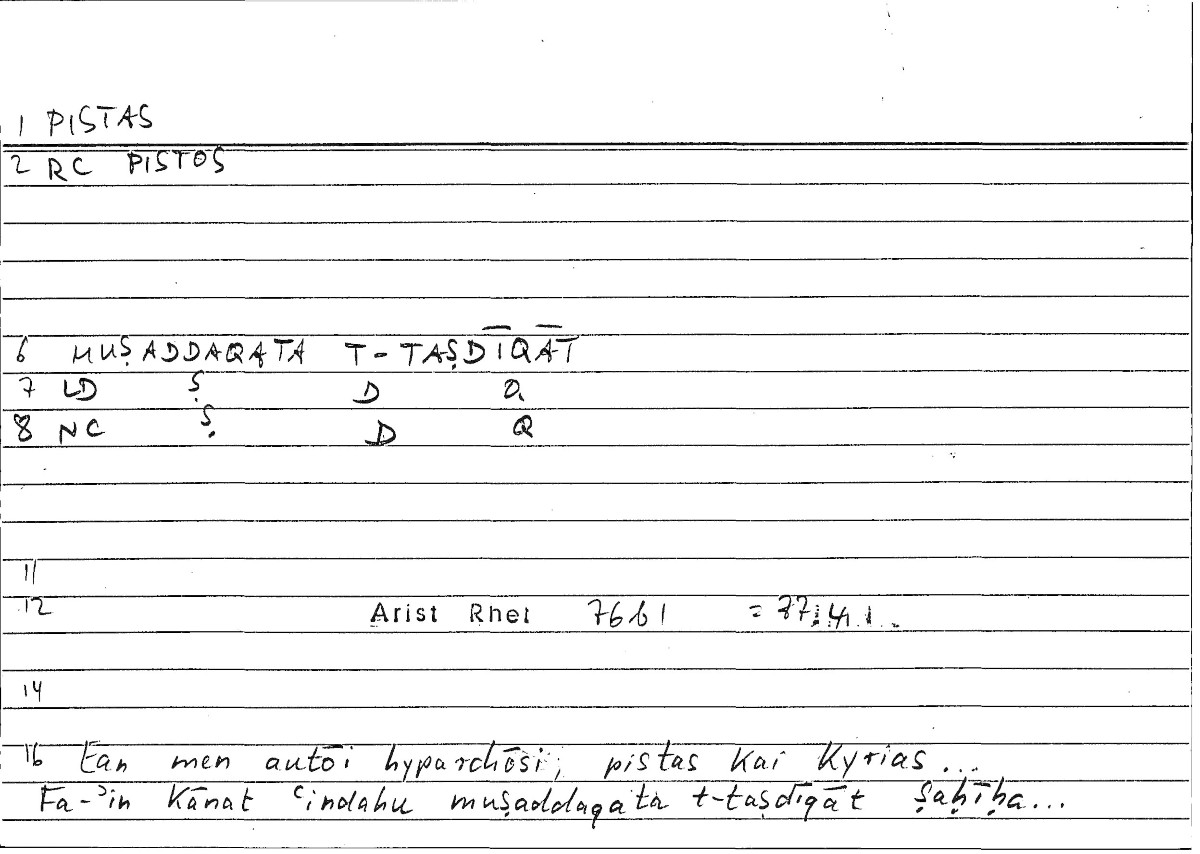 1 PISTAS
2 RC PISTOS
6 MUṢADDAQATA T-TAṢDĪQĀT
7 LD Ṣ D Q
8 NC Ṣ D Q
11
12 Arist Rhet 76b1
14
16 Ean men autōi hyparchōsi, pistas kai kyrias ...
Fa-ʾin kānat ʿindahu muṣaddaqata t-taṣdīqāt ṣaḥīḥa...